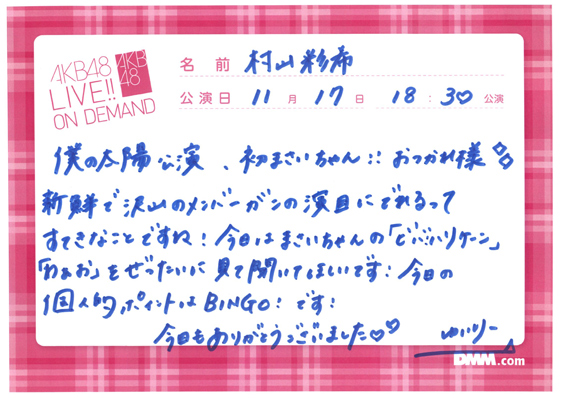 AKB48
LIVE!!
ON DEMAND
AKB
48
名前 村山彩希
公演日 11月17日 18:30♡公演
僕の太陽公演、初まさいちゃん!! おつかれ様
新鮮で沢山のメンバーがこの演目にでれるって
すてきなことですね!今日はまさいちゃんの「ビバハリケーン」
「わぁお」をぜったいに見て聞いてほしいです!今日の
個人的ポイントはBINGO!です!
今日もありがとうございました♡♡ ゆいりー
DMM.com